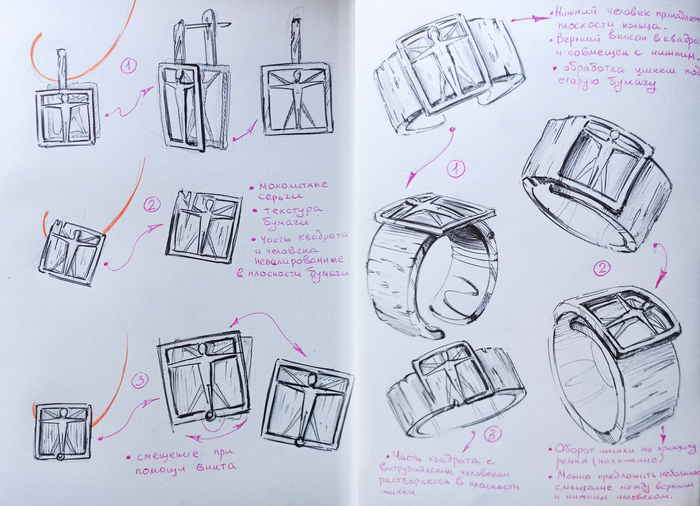 1
2
• монолитные
серьги
• текстура
бумаги
• Часть квадрата
и человека
невалированные
в плоскости бумаги.
3
• смещение при
помощи винта
• Нижний человек
плоскости кольца.
• Верхний вписан в квадрат
и совмещен с нижним.
• обработка шинки под
старую бумагу
1
2
2
• Часть квадрата с
витрувианским человеком
растворяется в плоскости
шинки
• Оборот шинки по принципу
ремня (наложение)
• Можно предложить небольшое
смещение между верхним
и нижним человеком.